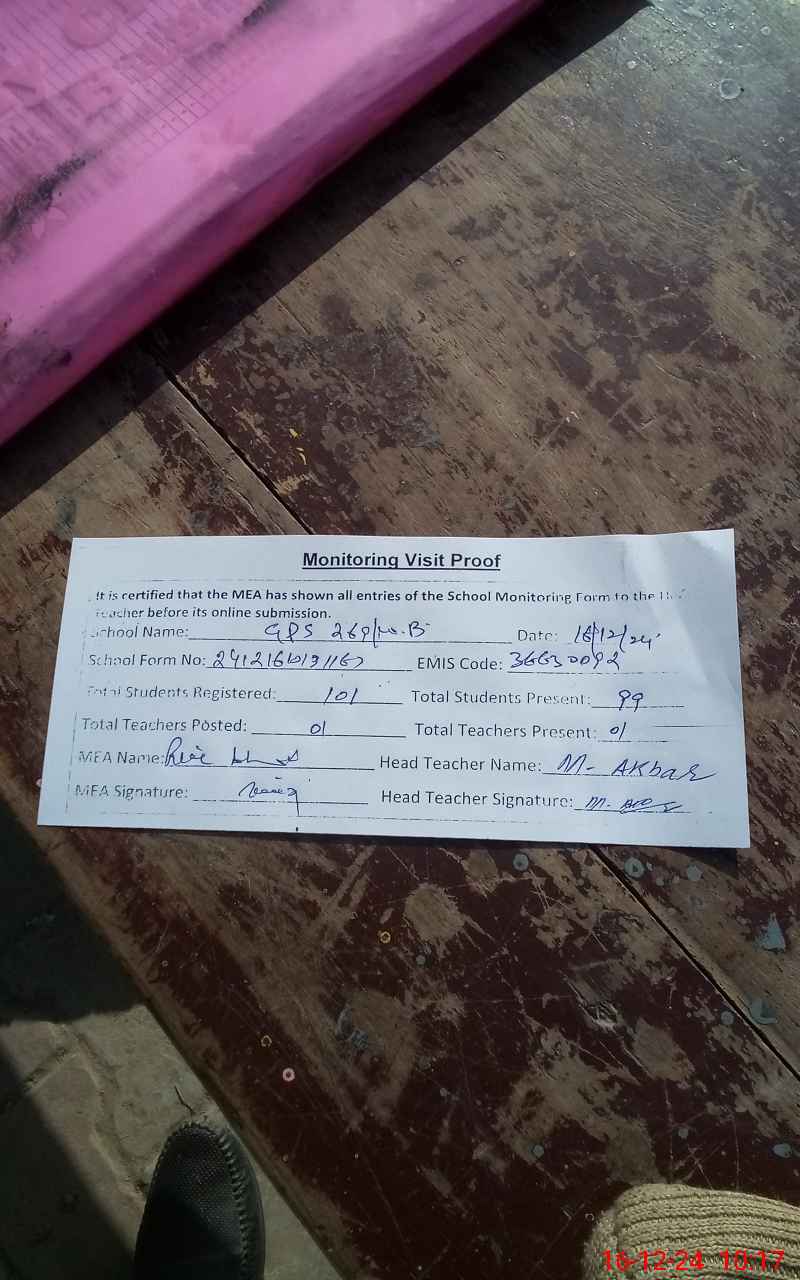 Monitoring Visit Proof
It is certified that the MEA has shown all entries of the School Monitoring Form to the
Teacher before its online submission.
School Name: GPS 269/ Date: 16/12/24
School Form No: EMIS Code: 36630092
Total Students Registered: 101 Total Students Present: 99
Total Teachers Posted: 01 Total Teachers Present: 01
MEA Name: Head Teacher Name: M. Akbar
MEA Signature: Head Teacher Signature: M.
16-12-24 10:17